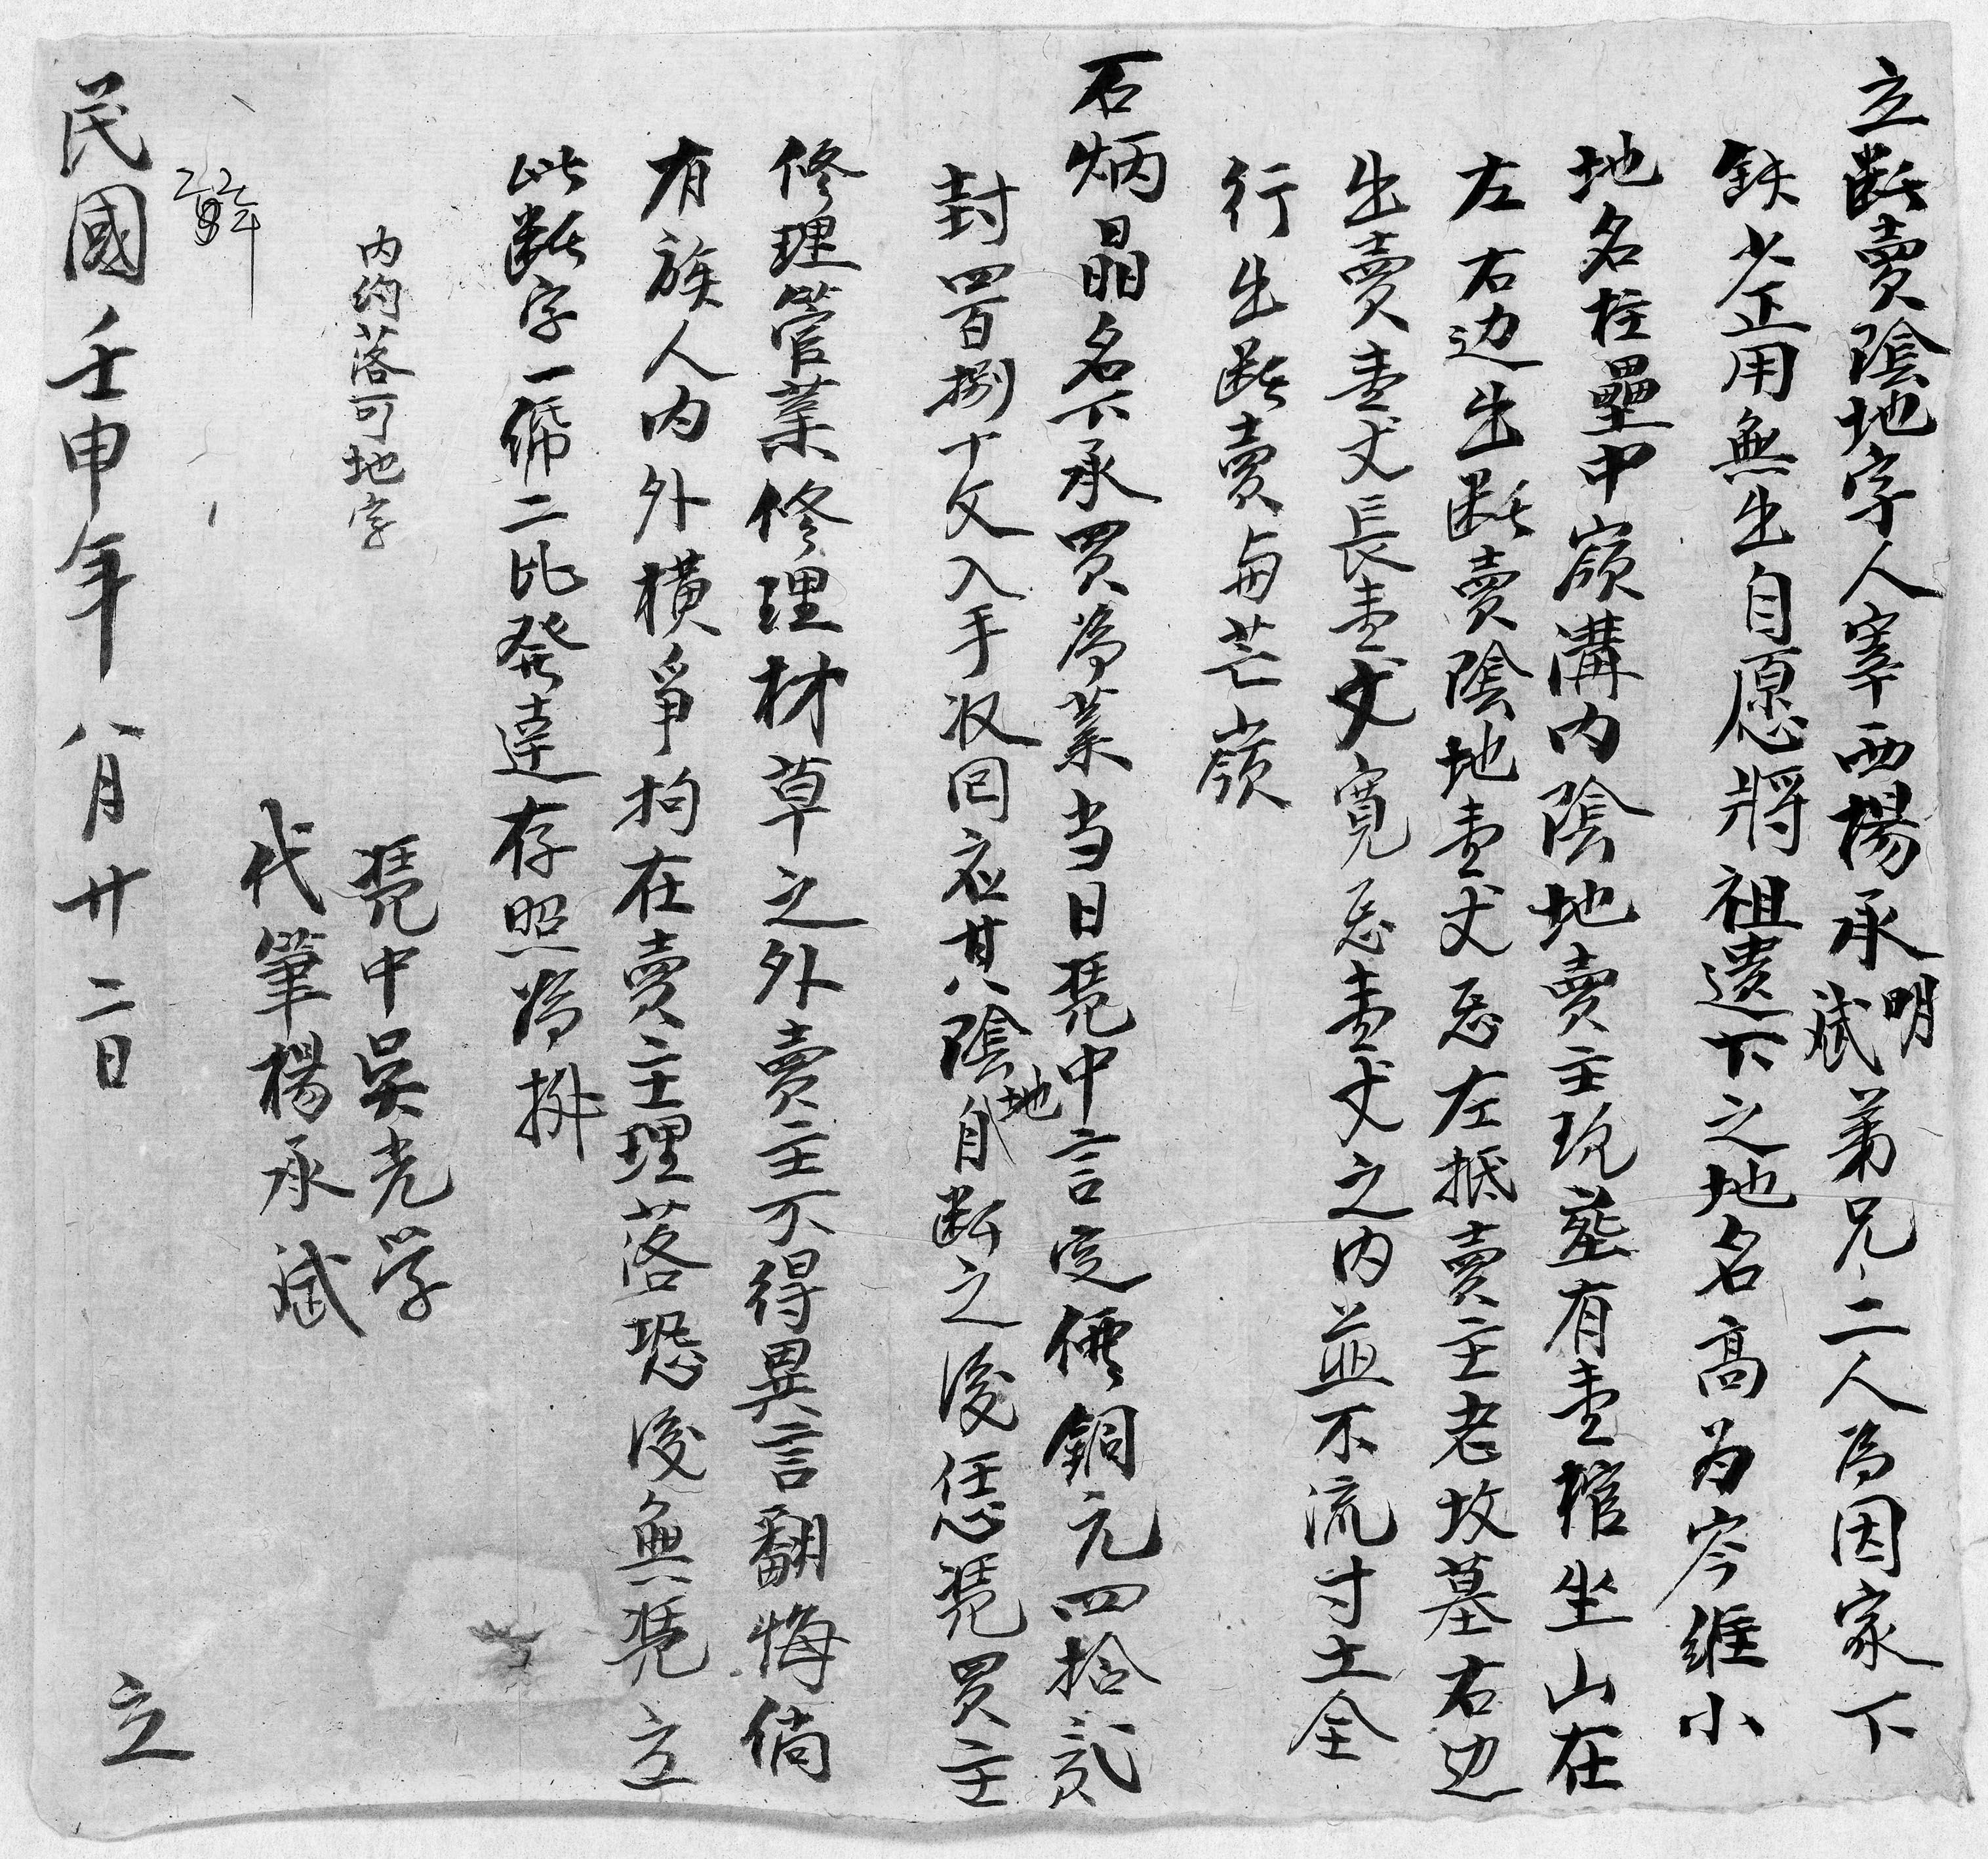 立断賣陰地字人寨西楊承明斌弟兄二人為因家下
鉄少正用無出自愿將祖遺下之地名高为岑維小
地名柱壘中嶺溝内陰地賣主現塟有壹棺坐山在
左右边出断賣陰地壹丈忍左抵賣主老坟墓右边
出賣壹丈長壹丈寬忍壹丈之内並不流寸土全
行出断賣与芒嶺
石炳晶名下承買為業当日凭中言定價銅元四拾貳
封四百捌十文入手收回應其陰地自断之後恁凭買主
修理管業修理材草之外賣主不得異言翻悔倘
有族人内外横爭拘在賣主理落恐後無凭立
此断字一帋二比發達存照為拠
内約落可地字
凭中吴光学
代筆楊承斌
民國壬申年八月廿二日 立